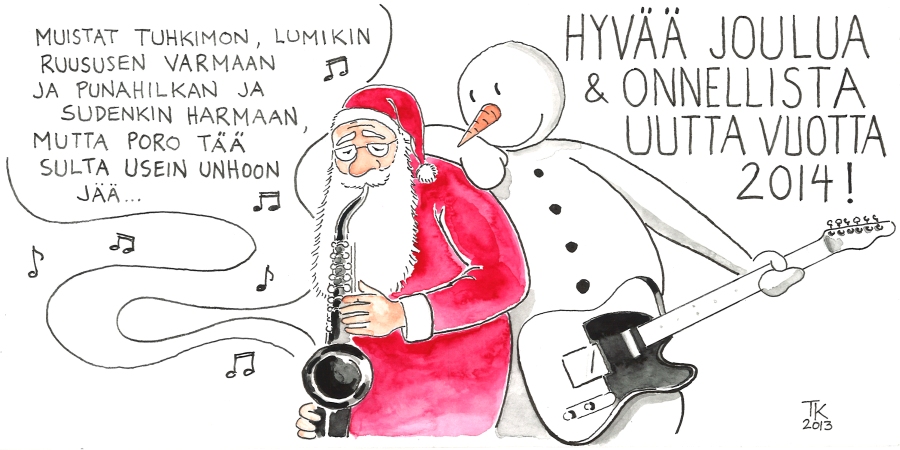 MUISTAT TUHKIMON, LUMIKIN
RUUSUSEN VARMAAN
JA PUNAHILKAN JA
SUDENKIN HARMAAN,
MUTTA PORO TÄÄ
SULTA USEIN UNHOON
JÄÄ...
HYVÄÄ JOULUA
& ONNELLISTA
UUTTA VUOTTA
2014!
TK
2013